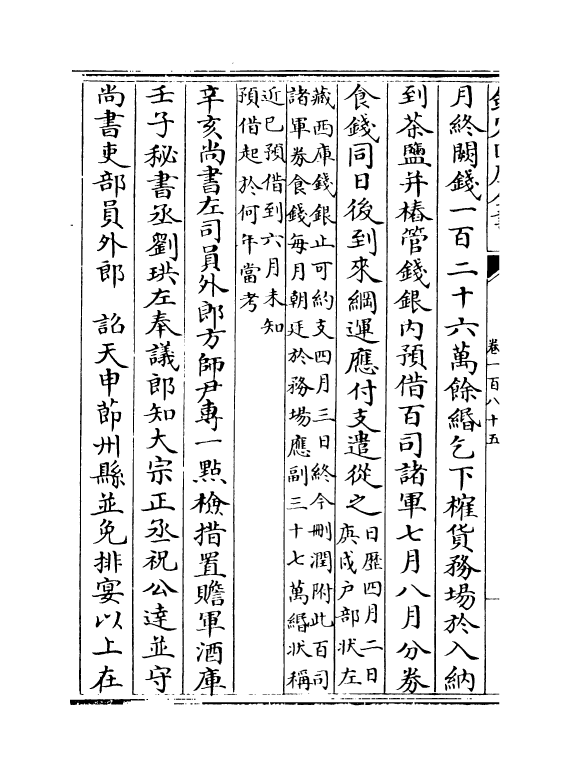 卷一百八十五
月終闕錢一百二十六萬餘緡乞下榷貨務場於入納
到茶鹽并樁管錢銀内預借百司諸軍七月八月分券
食錢同日後到來綱運應付支遣從之日厯四月二日
庚戌户部狀左
藏西庫錢銀止可約支四月三日終今刪潤附此百司
諸軍券食錢每月朝廷於務場應副三十七萬緡狀稱
近已預借到六月未知
預借起於何年當考
辛亥尚書左司員外郎方師尹專一點檢措置贍軍酒庫
壬子秘書丞劉珙左奉議郎知大宗正丞祝公達並守
尚書吏部員外郎 詔天申節州縣並免排宴以上在